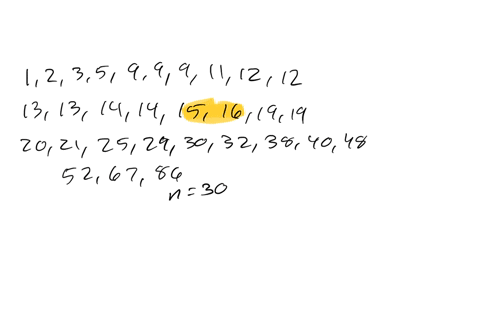 1, 2, 3, 5, 9, 9, 9, 11, 12, 12
13, 13, 14, 14, 15, 16, 19, 19
20, 21, 25, 29, 30, 32, 38, 40, 48
52, 67, 86
n = 30